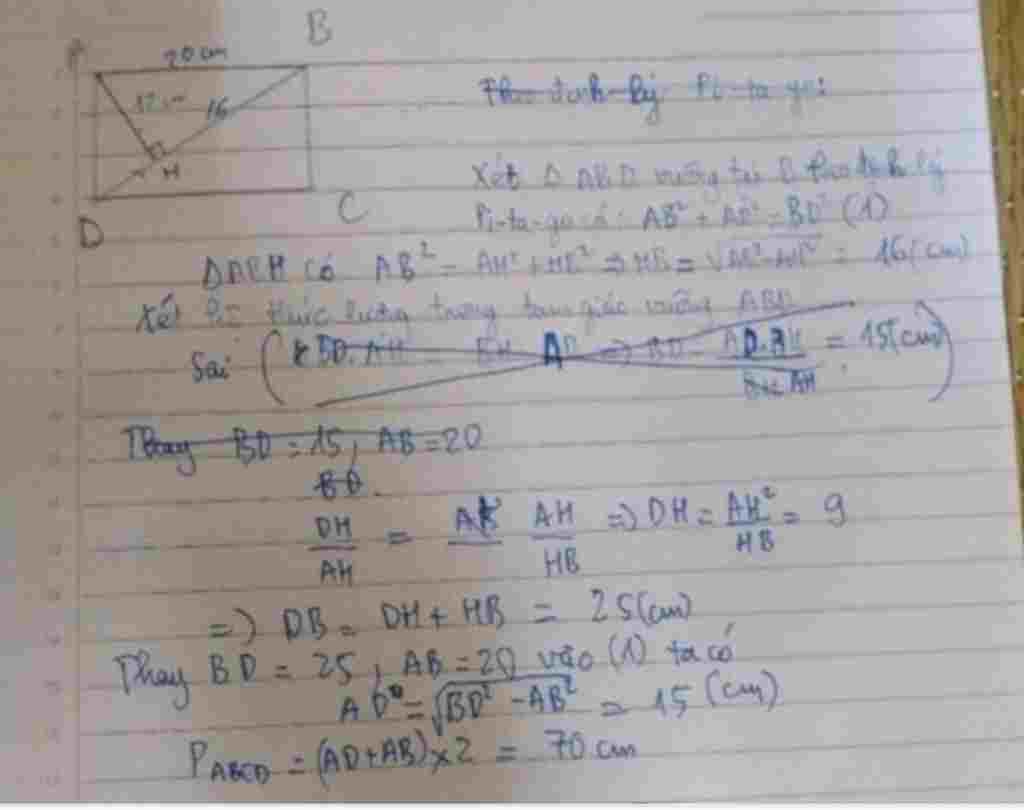 B
20 cm
12 cm
16
H
C
D
Theo định lý Pi-ta-go:
Xét Δ ABD vuông tại theo định lý
Pi-ta-go có: AB² + AD² = BD² (1)
ΔABH có AB² = AH² + HB² => HB = √AB²-AH² = 16(cm)
Xét hệ thức lượng trong tam giác vuông ABD
Sai ( BD.AH = BH AD => BD = = 15(cm) )
Thay BD = 15, AB = 20
BD.
DH/AH = AH/HB => DH = AH²/HB = 9
=> DB = DH + HB = 25(cm)
Thay BD = 25, AB = 20 vào (1) ta có
AD = √BD² - AB² = 15 (cm)
P ABCD = (AD+AB)×2 = 70 cm